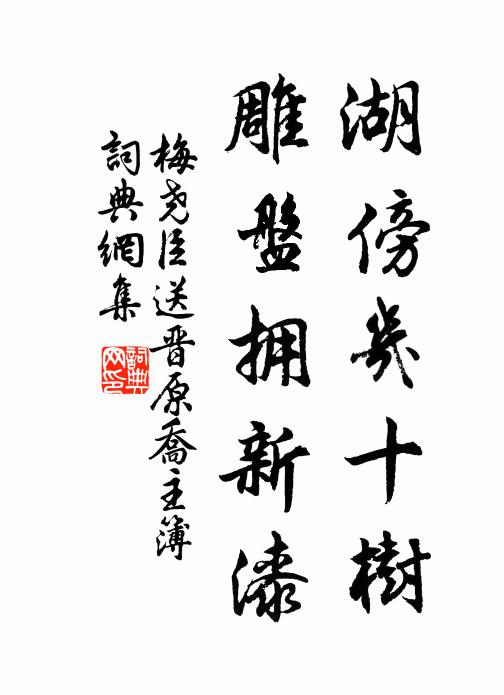 湖傍幾十樹
雕盤拥新漆
梅尧臣送晋原喬主簿
詞典網集
詞典网印